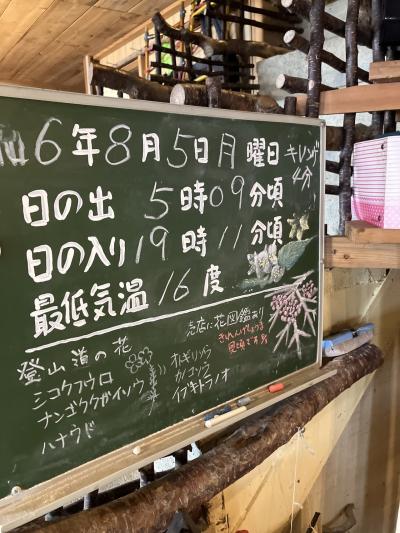 和6年8月5日月曜日
キレンゲ
4分
日の出 5時09分頃
日の入り19時11分頃
最低気温 16度
登山道の花
シコクフウロ
ナンゴククガイソウ
ハナウド
オトギリソウ
カノコソウ
イブキトラノオ
売店に花図鑑あり
きれんげしょうま
見頃です